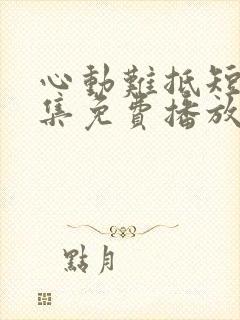 心動難抵短
集免費播放
點月